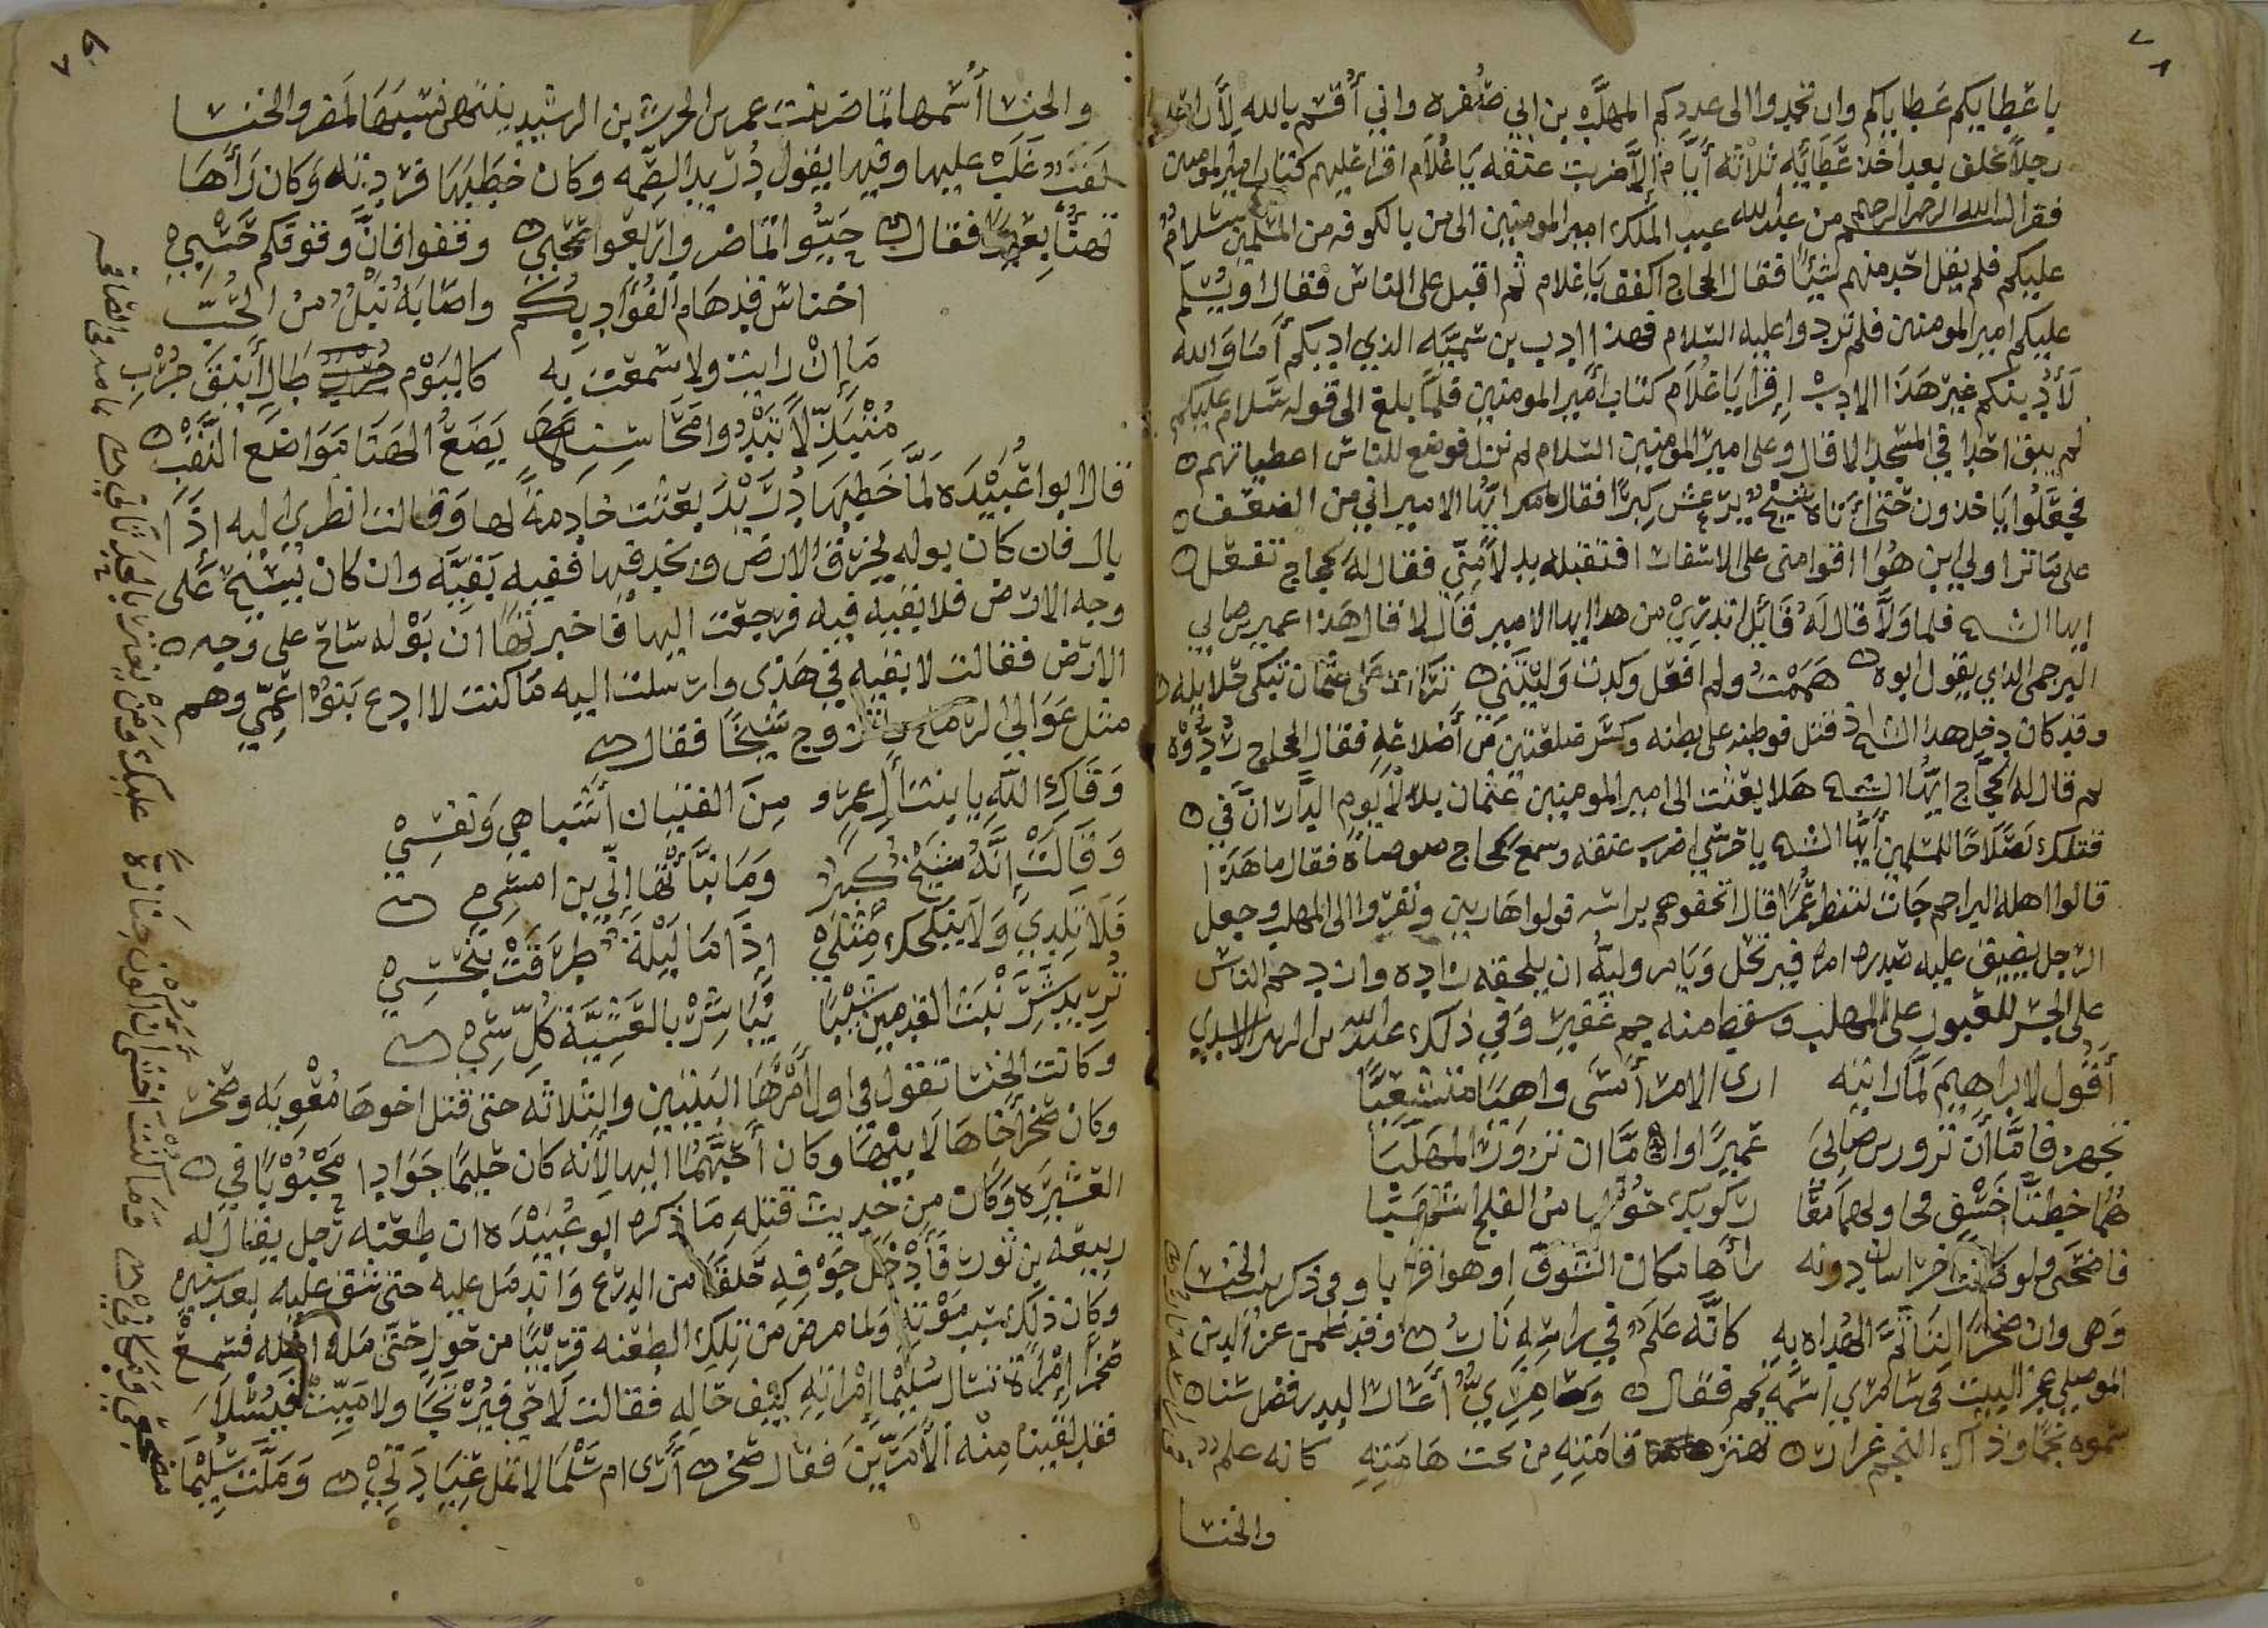 باعطايكم عطاياكم وان تجدوا الى عدوكم المهلب بن ابي صفره واني أقسم بالله لا
رجلاً تخلف بعد اخذ عطائه ثلاثه أيام إلا ضربت عنقه يا غلام اقرا عليهم كتاب امير المومنين
فقرا بسم الله الرحمن الرحيم من عبد الله عبد الملك امير المومنين الى من بالكوفه من المسلمين سلام
عليكم فلم يقل احد منهم شيئًا فقال الحجاج اكفف يا غلام ثم اقبل على الناس فقال اويسلم
عليكم امير المومنين فلم تردوا عليه السلام هذا ادب بن سميه الذي ادبكم أما والله
لأدبنكم غير هذا الادب إقرا يا غلام كتاب أمير المومنين فلما بلغ الى قوله سلام عليكم
لم يبق احد في المسجد الا قال وعلى امير المومنين السلام ثم نزل فوضع للناس اعطياتهم
فجعلوا ياخذون حتى اتاه شيخ يرعش كبرًا فقال ايها الامير اني من الضعف
على ما ترا ولي ابن هو اقوا منى على الاسفار افتقبله بدلاً منى فقال له الحجاج نفعل
ايها الشيخ فلما ولا قال له قائل اتدري من هذا ايها الامير قال لا قال هذا عمير بن ضابي
البرجمى الذي يقول ابوه هممت ولم افعل وكدت وليتني تركت على عثمان تبكى حلايله
وقد كان دخل هذا الشيخ قتل فوطئ على بطنه وكسر ضلعين من أضلاعه فقال الحجاج ردوه
ثم قال له الحجاج ايها الشيخ هلا بعثت الى امير المومنين عثمان بدلاً يوم الدار ان في
قتلك لصلاحًا للمسلمين أيها الشيخ يا حرسي اضرب عنقه وسمع الحجاج ضوضاة فقال ما هذا
قالوا اهله البراجم جات لتنظر عميرا قال اتحفوهم براسه فولوا هاربين ونفروا الى المهلب وجعل
الرجل يضيق عليه صدره امره فيرتحل ويامر وليه ان يلحقه بزاده وازدحم الناس
على الجسر للعبور على المهلب وسقط منه جم غفير وفي ذلك عبد الله بن الزبير الاسدي
أقول لابراهيم لما راتيه ارى الامر أمسى واهيا متشعبًا
تجهز فاما أن تزور بن ضابىَ عميرًا واما ان تزور المهلبا
هما خطتا خسف ركوبك حوليا من الثلج اشهبا
فاضحى ولو كانت خراسان دونه رأها مكان السوق او هو اقربا وفى ذكر الخنسا
وهى وان صخرًا لتاتم الهداه به كانه علم في راسه نار وقد ضمن عز الدين
الموصلي عجز البيت فى سامري اسمه نجم فقال وسامري أعار البدر فضل سنا
سموه نجمًا وذاك النجم غرار تهتز قامته من تحت هامته كانه علم
والخنسا
والخنسا أسمها تماضر بنت عمر بن الحرث بن الرشيد ينتهى نسبها لمضر والخنسا
لقب غلب عليها وفيها يقول دريد بن الصمه وكان خطبها فردته وكان رأها
تهنا بعيرًا فقال حيوا تماضر واربعوا صحبي وقفوا فان وقوفكم حسبي
اخناس قد هام الفؤاد بكم واصابه تبل من الحب
ما إن رايت ولا سمعت به كاليوم طال أينق جرب
متبذلاً تبدوا محاسنه يضع الهنا مواضع النقب
قال ابوا عبيده لما خطبها دريد بعثت خادمة لها وقالت انظري اليه اذا
بال فان كان بوله يخرق الارض ويخد فيها ففيه بقيه وان كان يسيح على
وجه الارض فلا بقيه فيه فرجعت اليها فاخبرتها ان بوله ساح على وجه
الارض فقالت لا بقيه في هذى وارسلت اليه ما كنت لا ادع بنو اعمي وهم
مثل عوالي الرماح واتزوج شيخًا فقال
وقاك الله يا بنت أل عمرو من الفتيان أشباهي ونفسي
وقالت إنه شيخ كبير وما نبأتها إني بن امس
فلا تلدي ولا ينكحك مثلي إذا ما ليلة طرقت بنحس
تريد شرنبث القدمين شثنا يباشر بالعشية كل
وكانت الخنسا تقول في اول أمرها البيتين والثلاثه حتى قتل اخوها معويه وصخر
وكان صخر أخاها لابيها وكان أحبهما اليها لأنه كان حليمًا جوادا محبوبًا في
العشيره وكان من حديث قتله ما ذكره ابو عبيده ان طعنه رجل يقال له
ربيعه بن ثور فأدخل جوفه حلقًا من الدرع واندمل عليه حتى شق عليه بعد سنين
وكان ذلك سبب موته ولما مرض من تلك الطعنه قريبًا من حول حتى مله اهله فسمع
صخرًا إمراة تسال سليما إمراته كيف حاله فقالت لا حي فيرتجا ولا ميت فيسلا
فقد لقينا منه الأمرين فقال صخر أرى ام سلما لا تمل عيادتي وملت سليما
مضجعي ومكاني وما كنت اخشى ان اكون جنازة عليك ومن يغتر بالحدثان